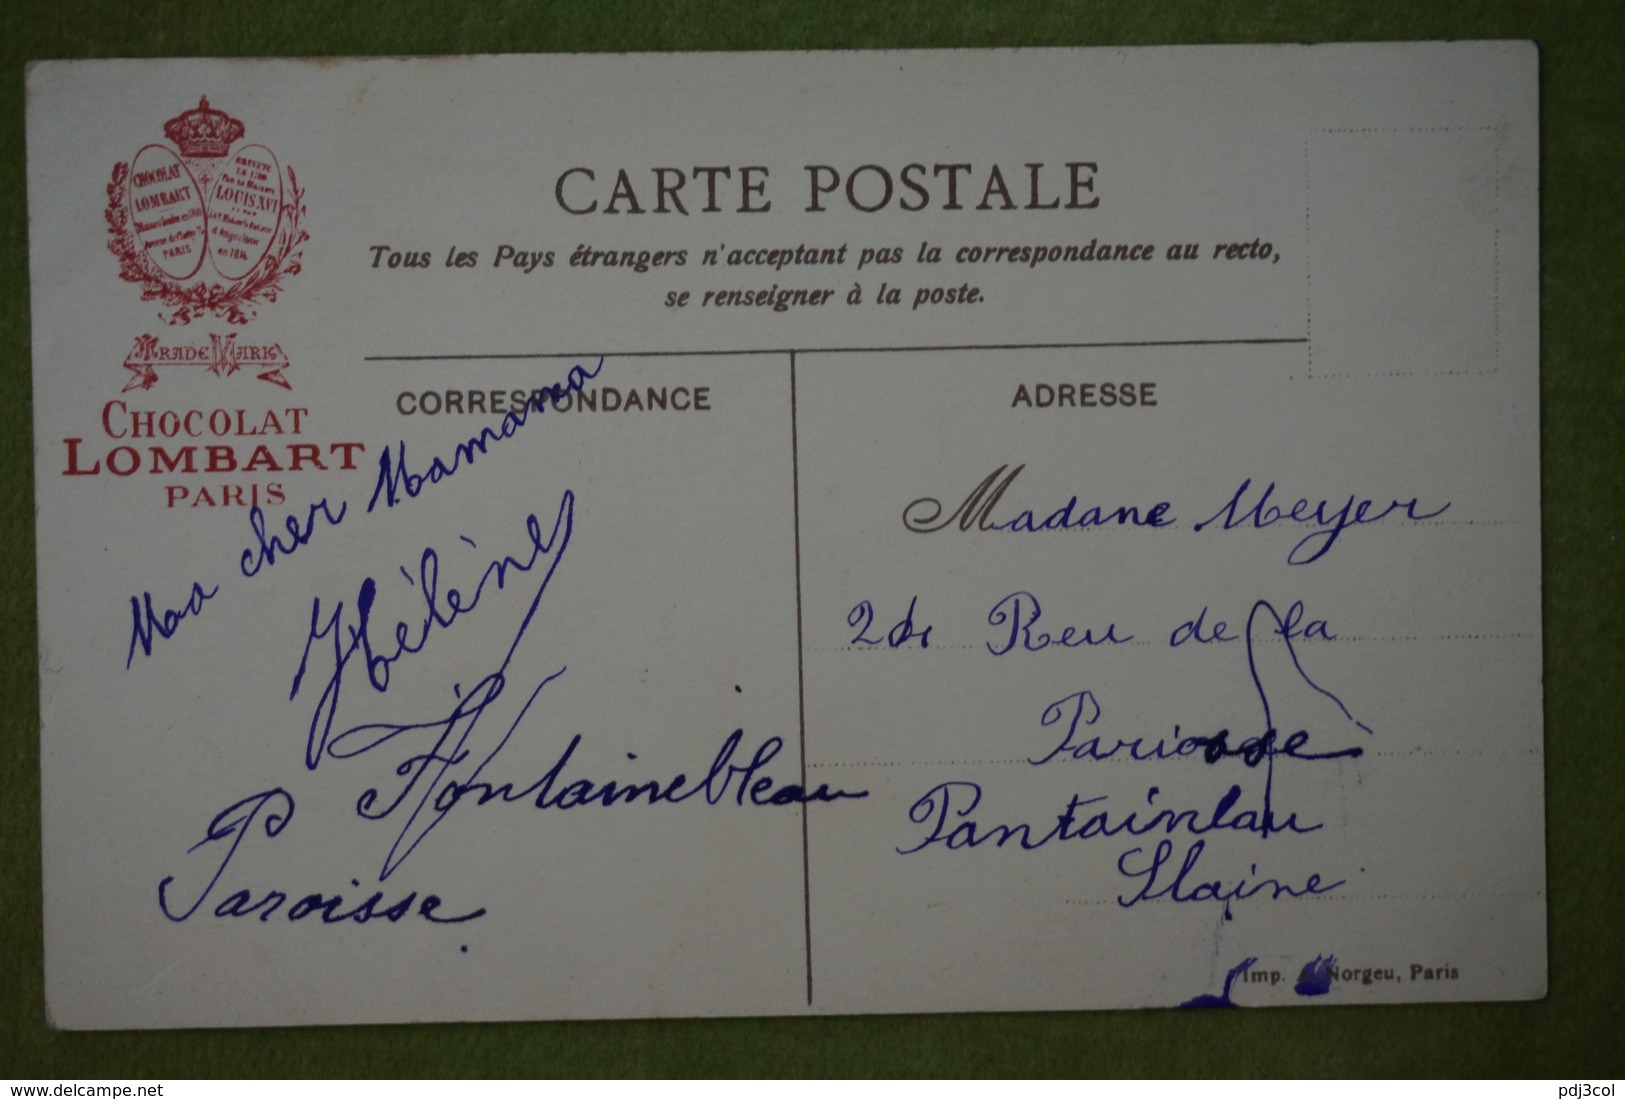 CHOCOLAT
LOMBART
PARIS
BREVETÉ
LOUIS XVI
en 1814
TRADE MARK
CHOCOLAT
LOMBART
PARIS
CARTE POSTALE
Tous les Pays étrangers n'acceptant pas la correspondance au recto,
se renseigner à la poste.
CORRESPONDANCE
Maa cher Mamama
Hélène
Fontainebleau
Paroisse
ADRESSE
Madane Meyer
24 Reu de la
Pariosse
Pantainlau
Slaine
Imp. A. Norgeu, Paris
www.delcampe.net
pdj3col